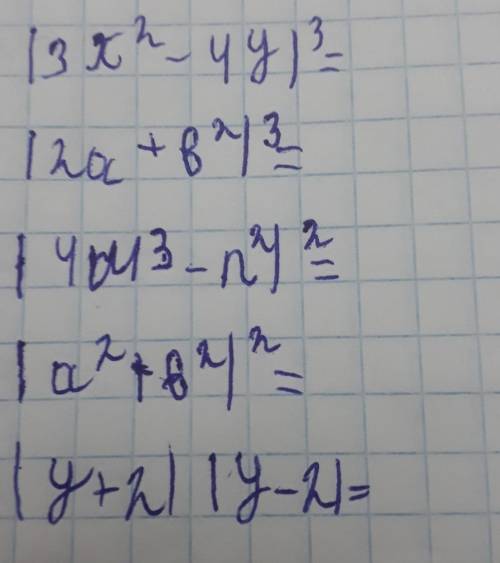 |3x² - 4y|³ =
|2a + b²|³ =
|4m³ - n²|² =
|a² + b²|² =
|y + 2| |y - 2| =